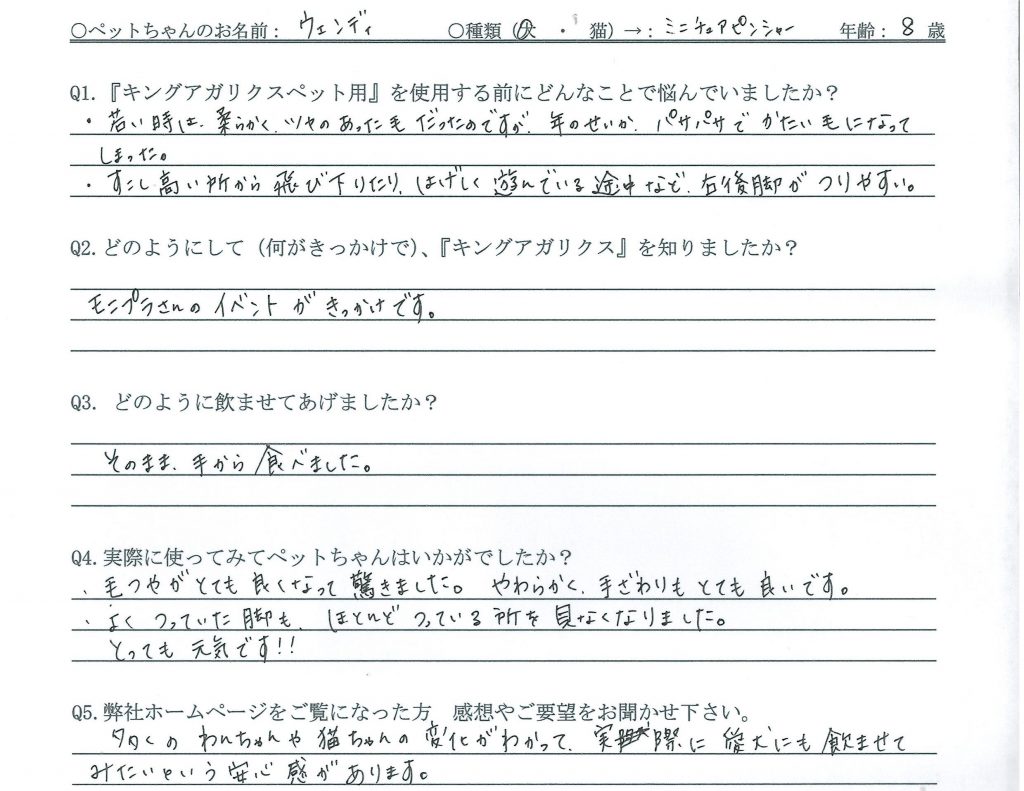 ○ペットちゃんのお名前：ウェンディ ○種類（犬 ・ 猫）→：ミニチュアピンシャー 年齢：8 歳
Q1.『キングアガリクスペット用』を使用する前にどんなことで悩んでいましたか？
・若い時は、柔らかく、ツヤのあった毛だったのですが、年のせいか、パサパサでかたい毛になって
しまった。
・すこし高い所から飛び下りたり、はげしく遊んでいる途中など、右後脚がつりやすい。
Q2.どのようにして（何がきっかけで）、『キングアガリクス』を知りましたか？
モニプラさんのイベントがきっかけです。
Q3. どのように飲ませてあげましたか？
そのまま、手から食べました。
Q4.実際に使ってみてペットちゃんはいかがでしたか？
・毛つやがとても良くなって驚きました。やわらかく、手ざわりもとても良いです。
・よくつっていた脚も、ほとんどつっている所を見なくなりました。
とっても元気です!!
Q5.弊社ホームページをご覧になった方、感想やご要望をお聞かせ下さい。
多くのわんちゃんや猫ちゃんの変化がわかって、実際に愛犬にも飲ませて
みたいという安心感があります。